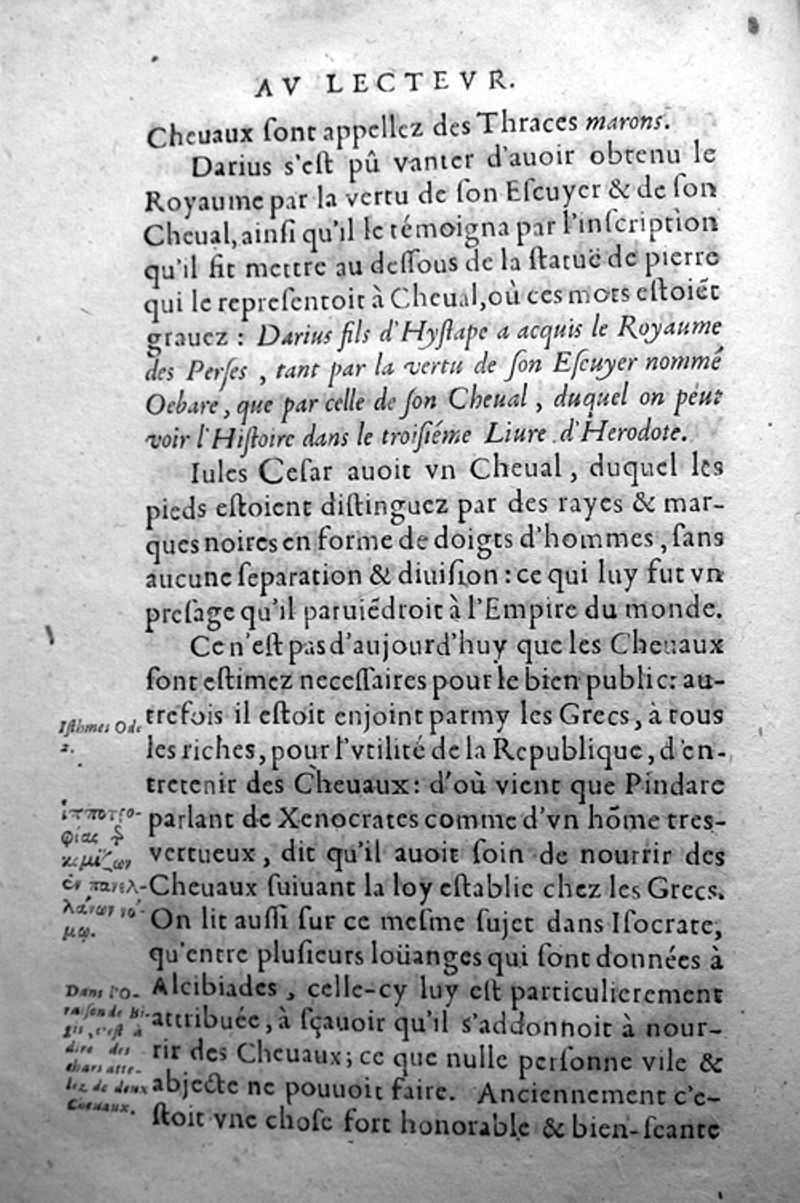 AV LECTEVR.
Cheuaux ſont appellez des Thraces marons.
Darius s'eſt pû vanter d'auoir obtenu le
Royaume par la vertu de ſon Eſcuyer & de ſon
Cheual, ainſi qu'il le témoigna par l'inſcription
qu'il fit mettre au deſſous de la ſtatuë de pierre
qui le repreſentoit à Cheual, où ces mots eſtoiẽt
grauez : Darius fils d'Hyſtape a acquis le Royaume
des Perſes, tant par la vertu de ſon Eſcuyer nommé
Oebare, que par celle de ſon Cheual, duquel on peut
voir l'Hiſtoire dans le troiſiéme Liure d'Herodote.
Iules Ceſar auoit vn Cheual, duquel les
pieds eſtoient diſtinguez par des rayes & mar-
ques noires en forme de doigts d'hommes, ſans
aucune ſeparation & diuiſion : ce qui luy fut vn
preſage qu'il paruiẽdroit à l'Empire du monde.
Ce n'eſt pas d'aujourd'huy que les Cheuaux
ſont eſtimez neceſſaires pour le bien public: au-
trefois il eſtoit enjoint parmy les Grecs, à tous
les riches, pour l'vtilité de la Republique, d'en-
tretenir des Cheuaux: d'où vient que Pindare
parlant de Xenocrates comme d'vn hõme tres-
vertueux, dit qu'il auoit ſoin de nourrir des
Cheuaux ſuiuant la loy eſtablie chez les Grecs.
On lit auſſi ſur ce meſme ſujet dans Iſocrate,
qu'entre pluſieurs loüanges qui ſont données à
Alcibiades, celle-cy luy eſt particulierement
attribuée, à ſçauoir qu'il s'addonnoit à nour-
rir des Cheuaux; ce que nulle perſonne vile &
abjecte ne pouuoit faire. Anciennement c'e-
ſtoit vne choſe fort honorable & bien-ſeante
Iſthmes Ode
2.
ἱπποτρο-
φίας
νομίζων
ἐν πανελ-
λάνων νό-
μῳ.
Dans l'O-
raiſon de Bi-
gis, c'eſt à
dire des
chars atte-
lez de deux
Cheuaux.